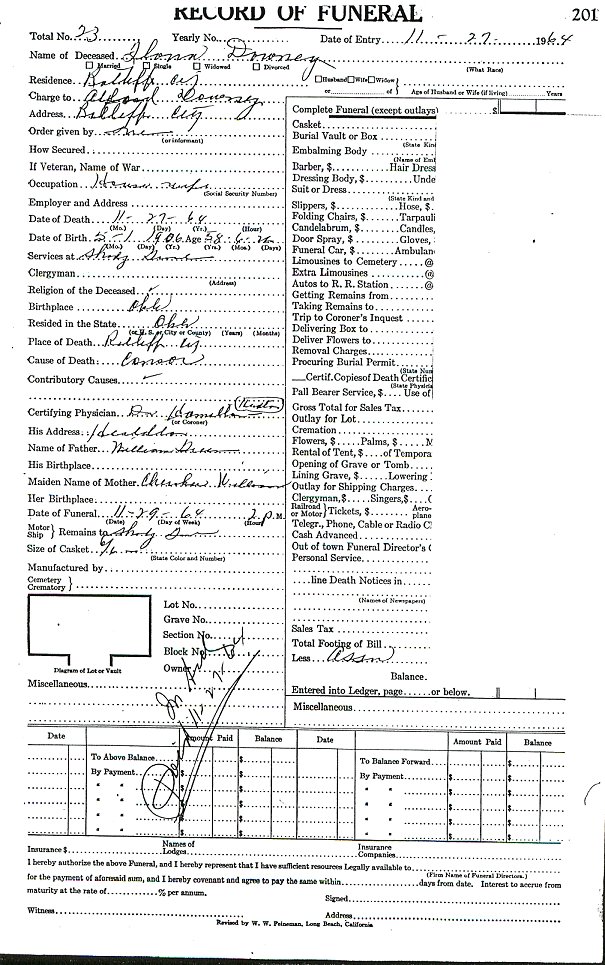 RECORD OF FUNERAL
201
Total No. 23 Yearly No. Date of Entry 11-27-1964
Name of Deceased Downey
Married Single Widowed Divorced (What Race)
Residence Ratliff City Husband Wife Widow
or of Age of Husband or Wife (if living) Years
Charge to Downey
Address Ratliff City
Order given by
(or informant)
How Secured
If Veteran, Name of War
Occupation House wife
(Social Security Number)
Employer and Address
Date of Death 11-27-64
(Mo.) (Day) (Yr.) (Hour)
Date of Birth 5-1 1906 Age 58
(Mo.) (Day) (Yr.) (Yrs.) (Mos.) (Days)
Services at Shady
Clergyman
(Address)
Religion of the Deceased
Birthplace Okla
Resided in the State Okla
(or U. S. or City or County) (Years) (Months)
Place of Death Ratliff City
Cause of Death: Cancer
Contributory Causes
Certifying Physician Dr. Hamilton
(or Coroner)
His Address Healdton
Name of Father William
His Birthplace
Maiden Name of Mother
Her Birthplace
Date of Funeral 11-29-64 2 P.M.
(Date) (Day of Week) (Hour)
Motor Ship Remains to Shady
Size of Casket
(State Color and Number)
Manufactured by
Cemetery
Crematory
Lot No.
Grave No.
Section No.
Block No.
Owner
Diagram of Lot or Vault
Miscellaneous
Complete Funeral (except outlays) $
Casket
Burial Vault or Box
(State Kind
Embalming Body
(Name of Emb
Barber, $ Hair Dress
Dressing Body, $ Unde
Suit or Dress
(State Kind and
Slippers, $ Hose, $
Folding Chairs, $ Tarpauli
Candelabrum, $ Candles,
Door Spray, $ Gloves,
Funeral Car, $ Ambulan
Limousines to Cemetery @
Extra Limousines @
Autos to R. R. Station @
Getting Remains from
Taking Remains to
Trip to Coroner's Inquest
Delivering Box to
Deliver Flowers to
Removal Charges
Procuring Burial Permit
(State Num
Certif. Copies of Death Certific
(State Physicia
Pall Bearer Service, $ Use of
Gross Total for Sales Tax
Outlay for Lot
Cremation
Flowers, $ Palms, $ M
Rental of Tent, $ of Tempora
Opening of Grave or Tomb
Lining Grave, $ Lowering
Outlay for Shipping Charges
Clergyman, $ Singers, $
Railroad or Motor Tickets, $ Aero-plane
Telegr., Phone, Cable or Radio C
Cash Advanced
Out of town Funeral Director's
Personal Service
line Death Notices in
(Names of Newspapers)
Sales Tax
Total Footing of Bill
Less Assn
Balance
Entered into Ledger, page or below.
Miscellaneous
Date Amount Paid Balance Date Amount Paid Balance
To Above Balance $ To Balance Forward $
By Payment $ By Payment $
" " $ " " $
" " $ " " $
" " $ " " $
" " $ " " $
Insurance $ Names of Lodges Insurance Companies
I hereby authorize the above Funeral, and I hereby represent that I have sufficient resources Legally available to
(Firm Name of Funeral Directors.)
for the payment of aforesaid sum, and I hereby covenant and agree to pay the same within days from date. Interest to accrue from
maturity at the rate of % per annum.
Signed
Witness Address
Revised by W. W. Peineman, Long Beach, California